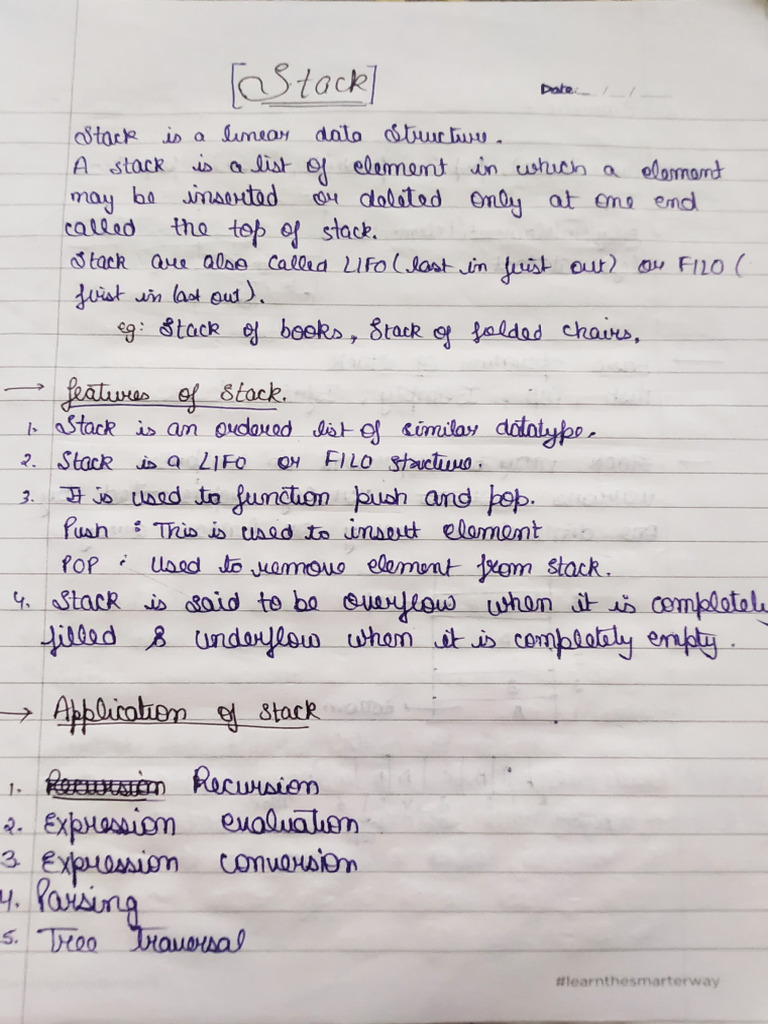 [Stack]
Date: _ / _ / _
Stack is a linear data structure.
A stack is a list of element in which a element
may be inserted or deleted only at one end
called the top of stack.
Stack are also called LIFO (last in first out) or FILO (
first in last out).
eg: Stack of books, Stack of folded chairs.
→ features of Stack.
1. Stack is an ordered list of similar datatype.
2. Stack is a LIFO or FILO structure.
3. It is used to function push and pop.
Push : This is used to insert element
POP : Used to remove element from stack.
4. Stack is said to be overflow when it is completely
filled & underflow when it is completely empty.
→ Application of Stack
1. Recursion Recursion
2. Expression evaluation
3. Expression conversion
4. Parsing
5. Tree Traversal
#learnthesmarterway